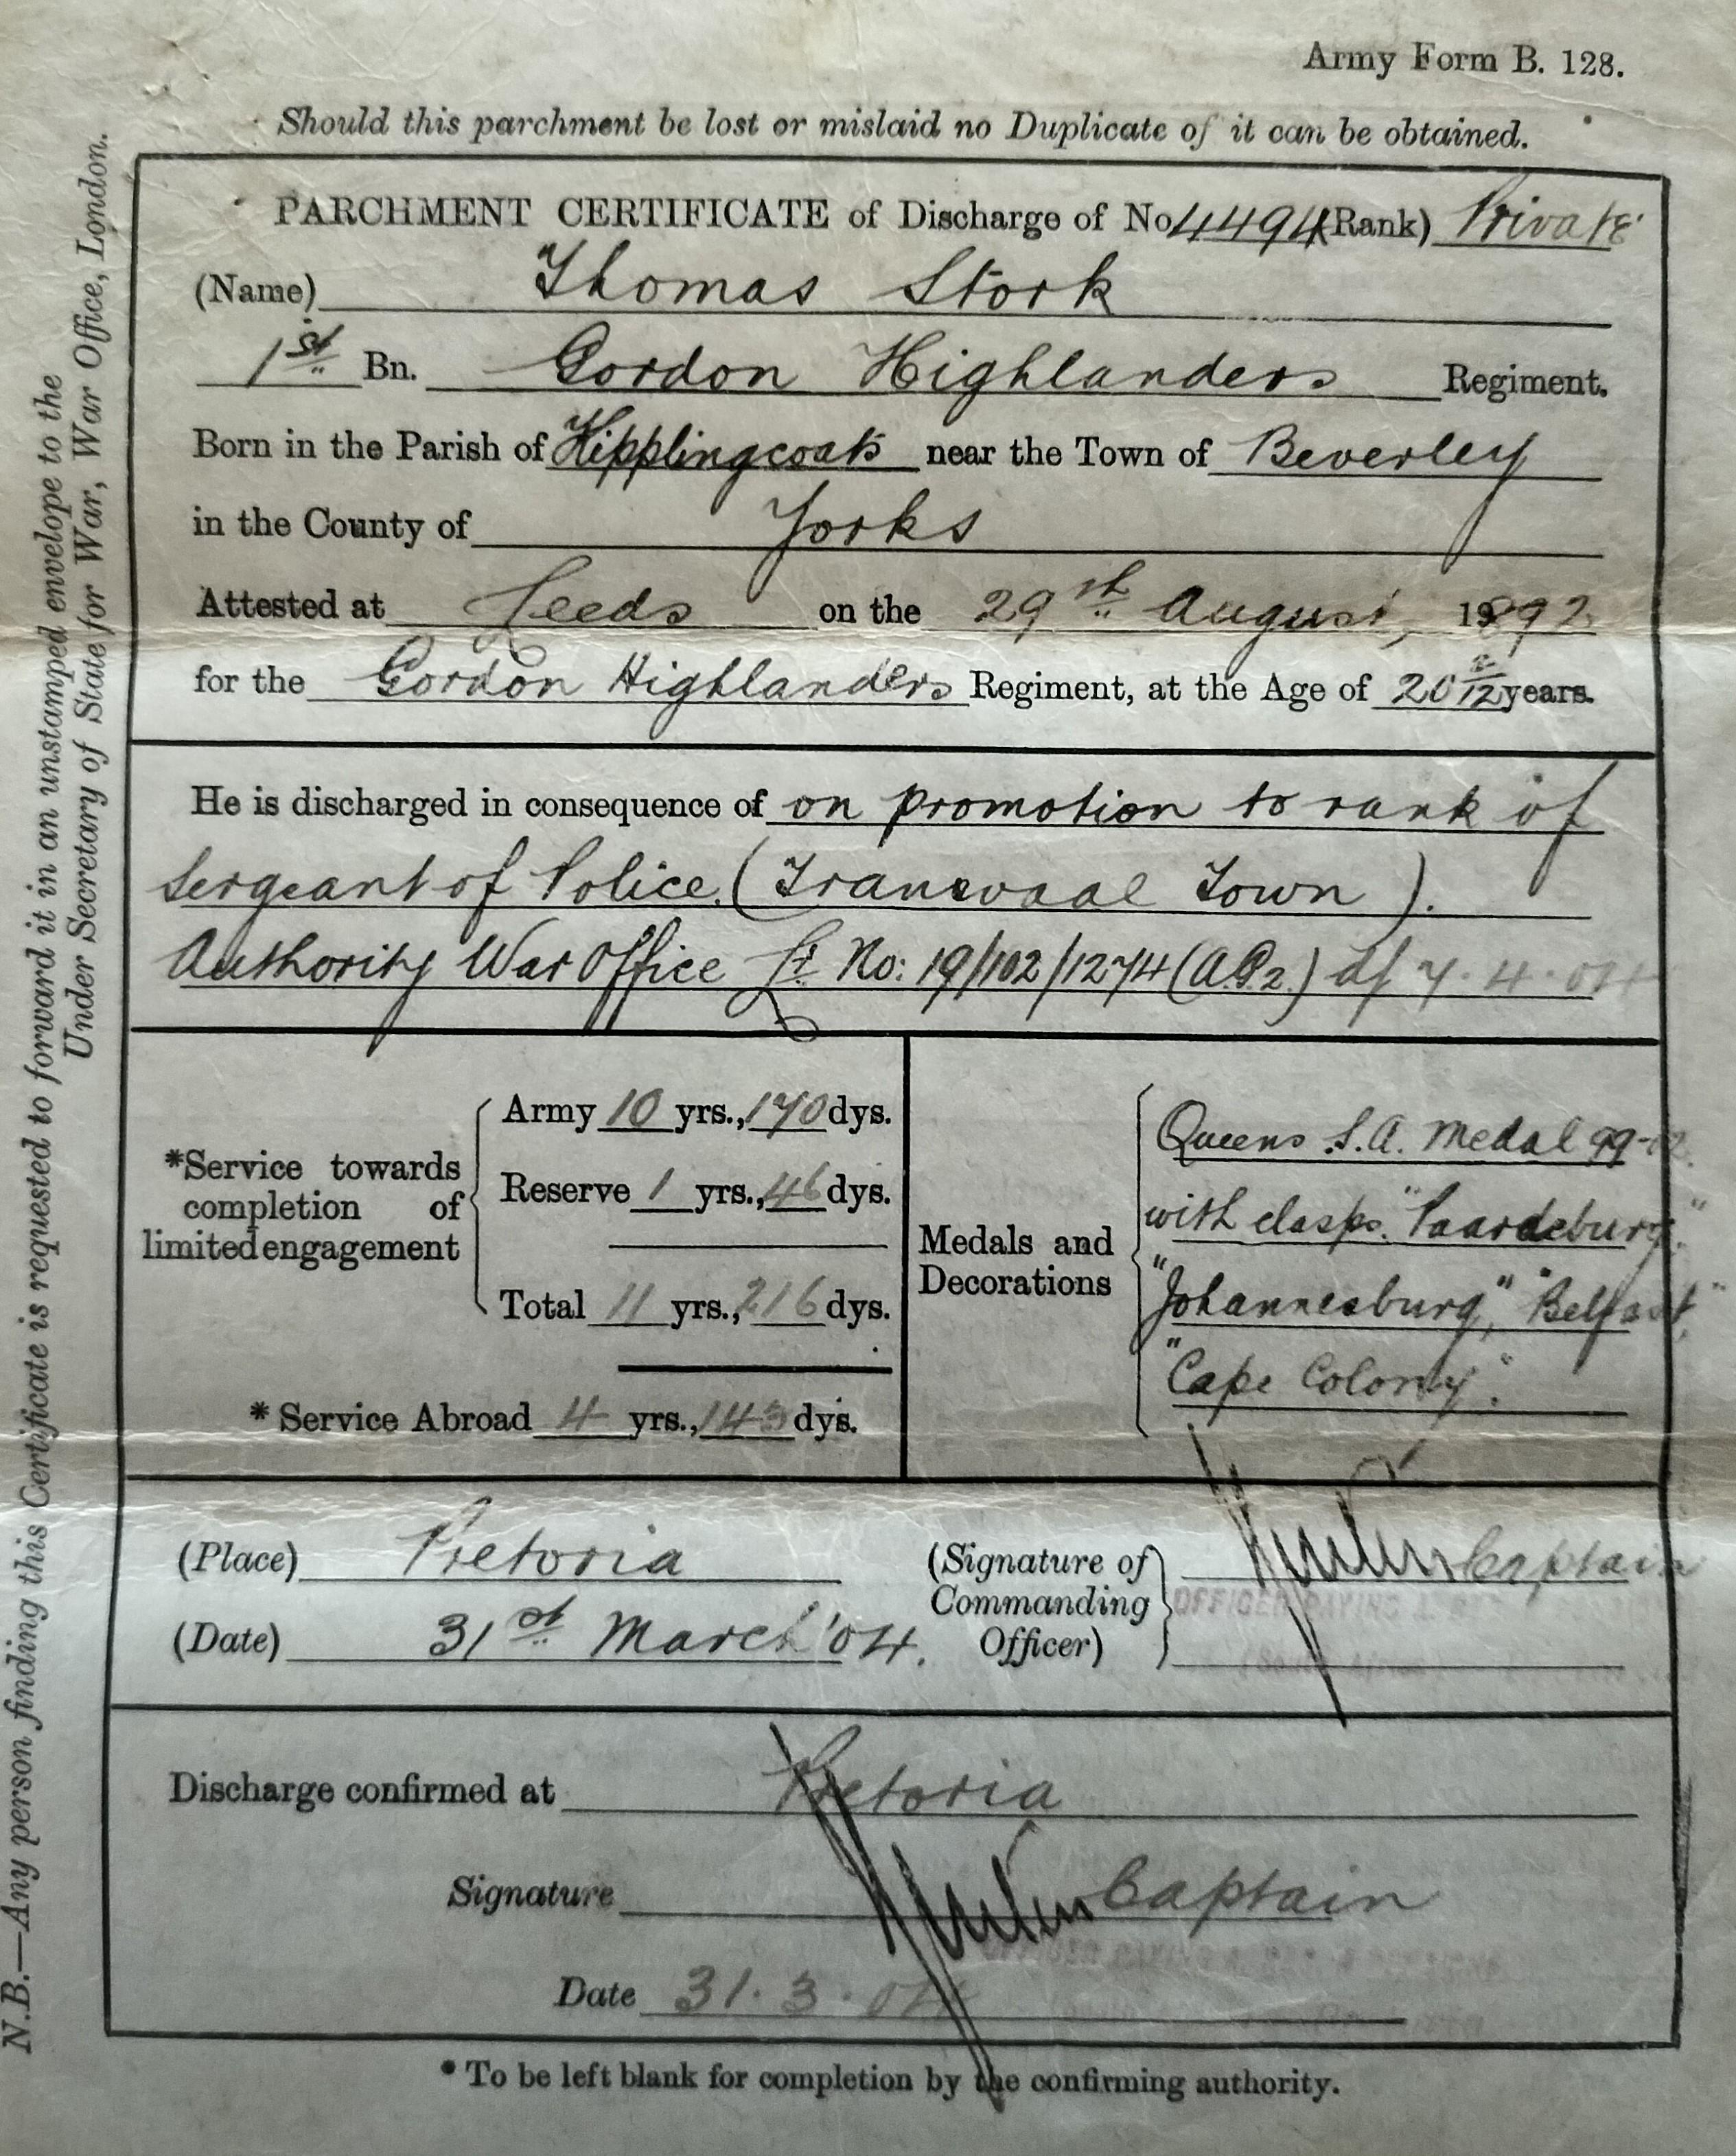 Army Form B. 128.
Should this parchment be lost or mislaid no Duplicate of it can be obtained.
PARCHMENT CERTIFICATE of Discharge of No 4494 (Rank) Private
(Name) Thomas Stork
1st Bn. Gordon Highlanders Regiment.
Born in the Parish of Kipplingcoats near the Town of Beverley
in the County of Yorks
Attested at Leeds on the 29th August, 1892
for the Gordon Highlanders Regiment, at the Age of 20 2/12 years.
He is discharged in consequence of on promotion to rank of
Sergeant of Police. (Transvaal Town).
Authority War Office Lr. No: 19/102/1274 (A.G.2.) of 7.4.04
*Service towards completion of limited engagement
Army 10 yrs., 170 dys.
Reserve 1 yrs., 46 dys.
Total 11 yrs., 216 dys.
* Service Abroad 4 yrs., 143 dys.
Medals and Decorations
Queens S.A. Medal 99-02.
with clasps. "Paardeburg."
"Johannesburg," "Belfast,"
"Cape Colony".
(Place) Pretoria
(Date) 31st March '04.
(Signature of Commanding Officer) Captain
OFFICER PAYING
Discharge confirmed at Pretoria
Signature Captain
Date 31.3.04
* To be left blank for completion by the confirming authority.
N.B.—Any person finding this Certificate is requested to forward it in an unstamped envelope to the
Under Secretary of State for War, War Office, London.